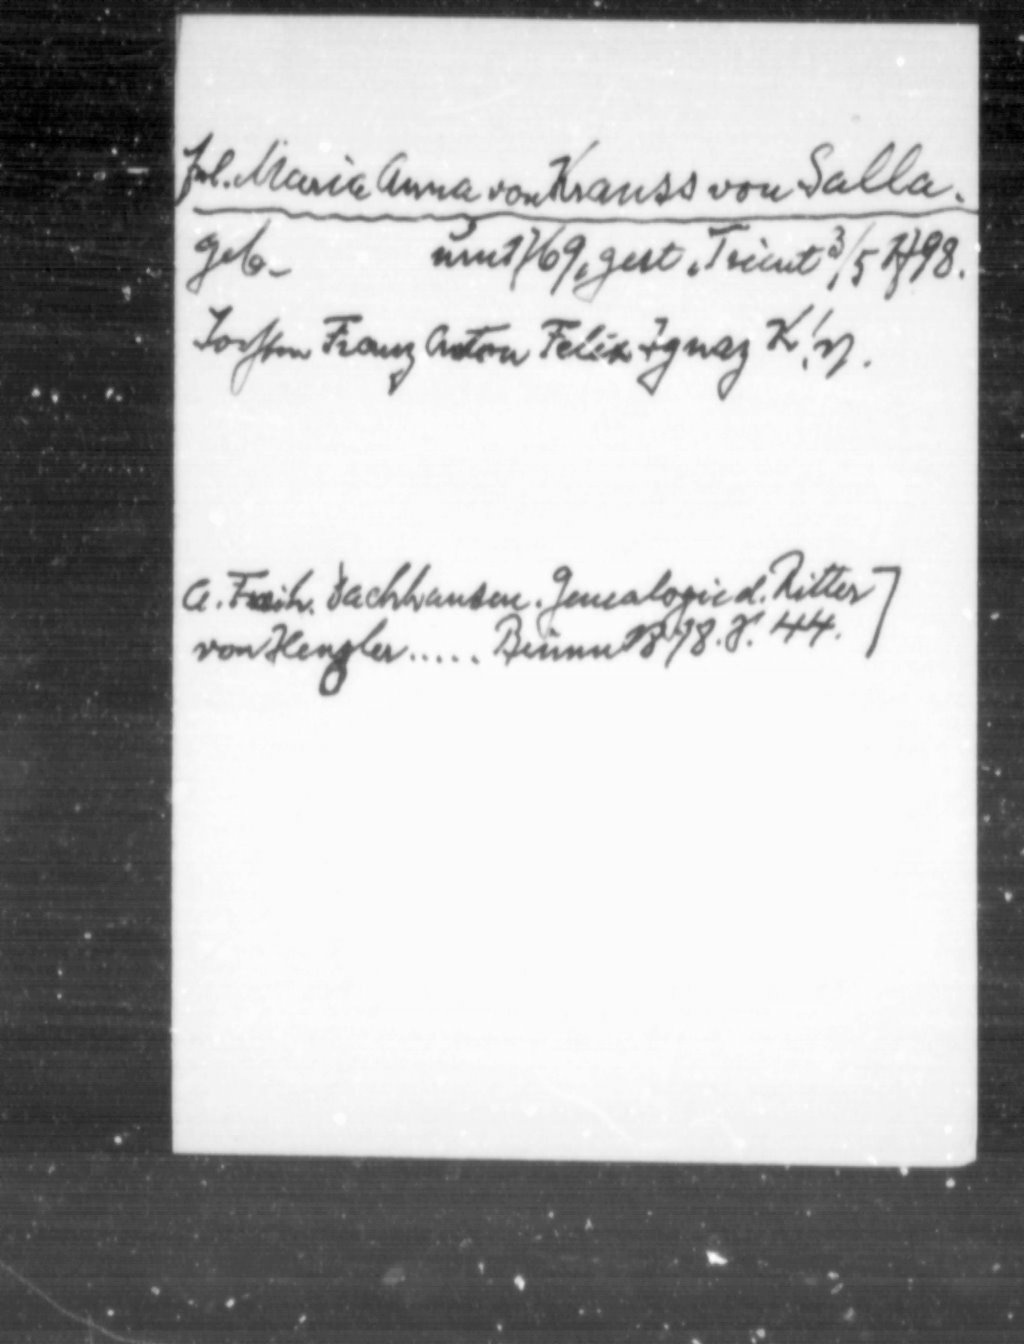 Frl. Maria Anna von Krauss von Salla.
geb. um 1769, gest. Trient 3/5 1798.
Franz Anton Felix Ignaz K!
A. Freih. Dachhausen. Genealogie d. Ritter
von Hengler..... Brünn 1878. 44.